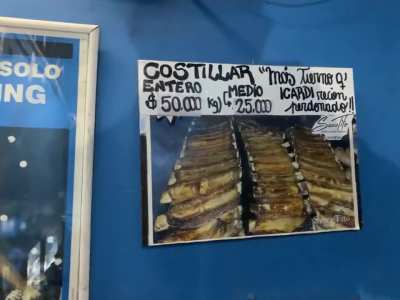 SOLO
ING
COSTILLAR "más tierno q'
ENTERO MEDIO ICARDI recien
$ 50.000 kg) 25.000 perdonado!!